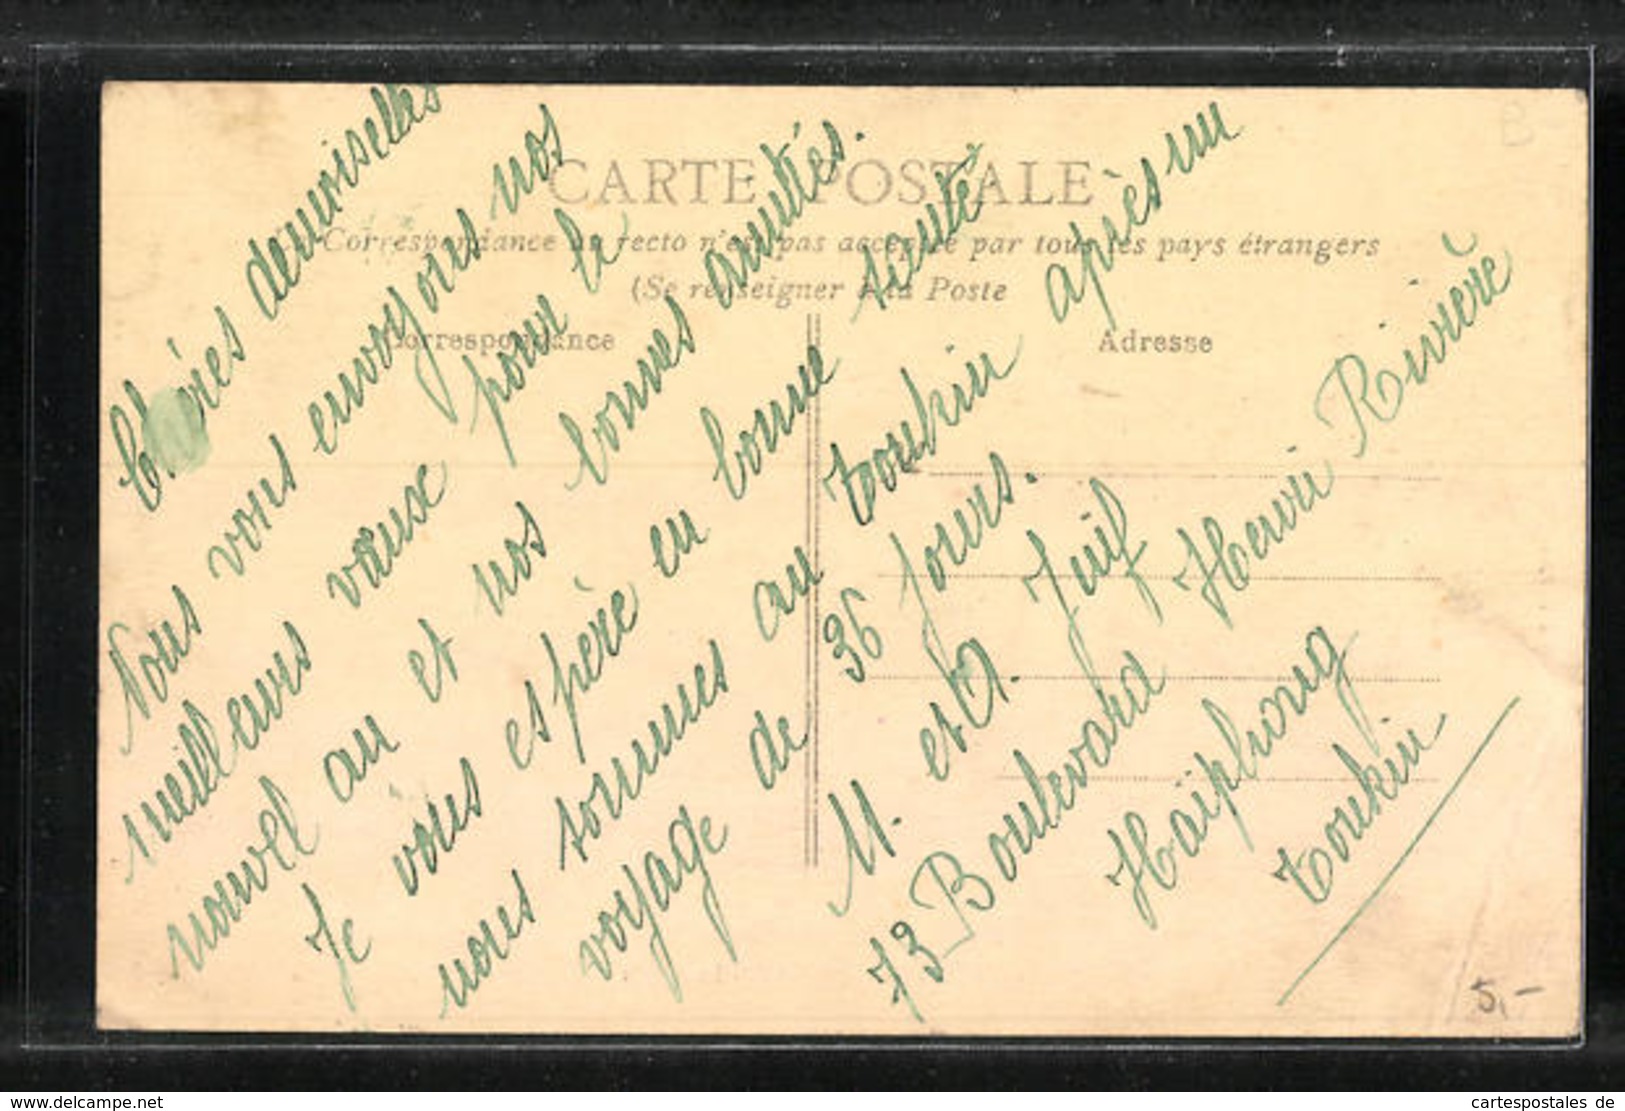 CARTE POSTALE
Correspondance au recto n'est pas acceptée par tous les pays étrangers
(Se renseigner à la Poste
Correspondance
Adresse
Chères demoiselles
Nous vous envoyons nos
meilleurs vœux pour le
nouvel an et nos bonnes amitiés.
Je vous espère en bonne santé
nous sommes au tonkin après un
voyage de 36 jours.
M. et A. Juif
73 Boulevard Henri Rivière
Haïphong
tonkin
5,-
www.delcampe.net
cartespostales de